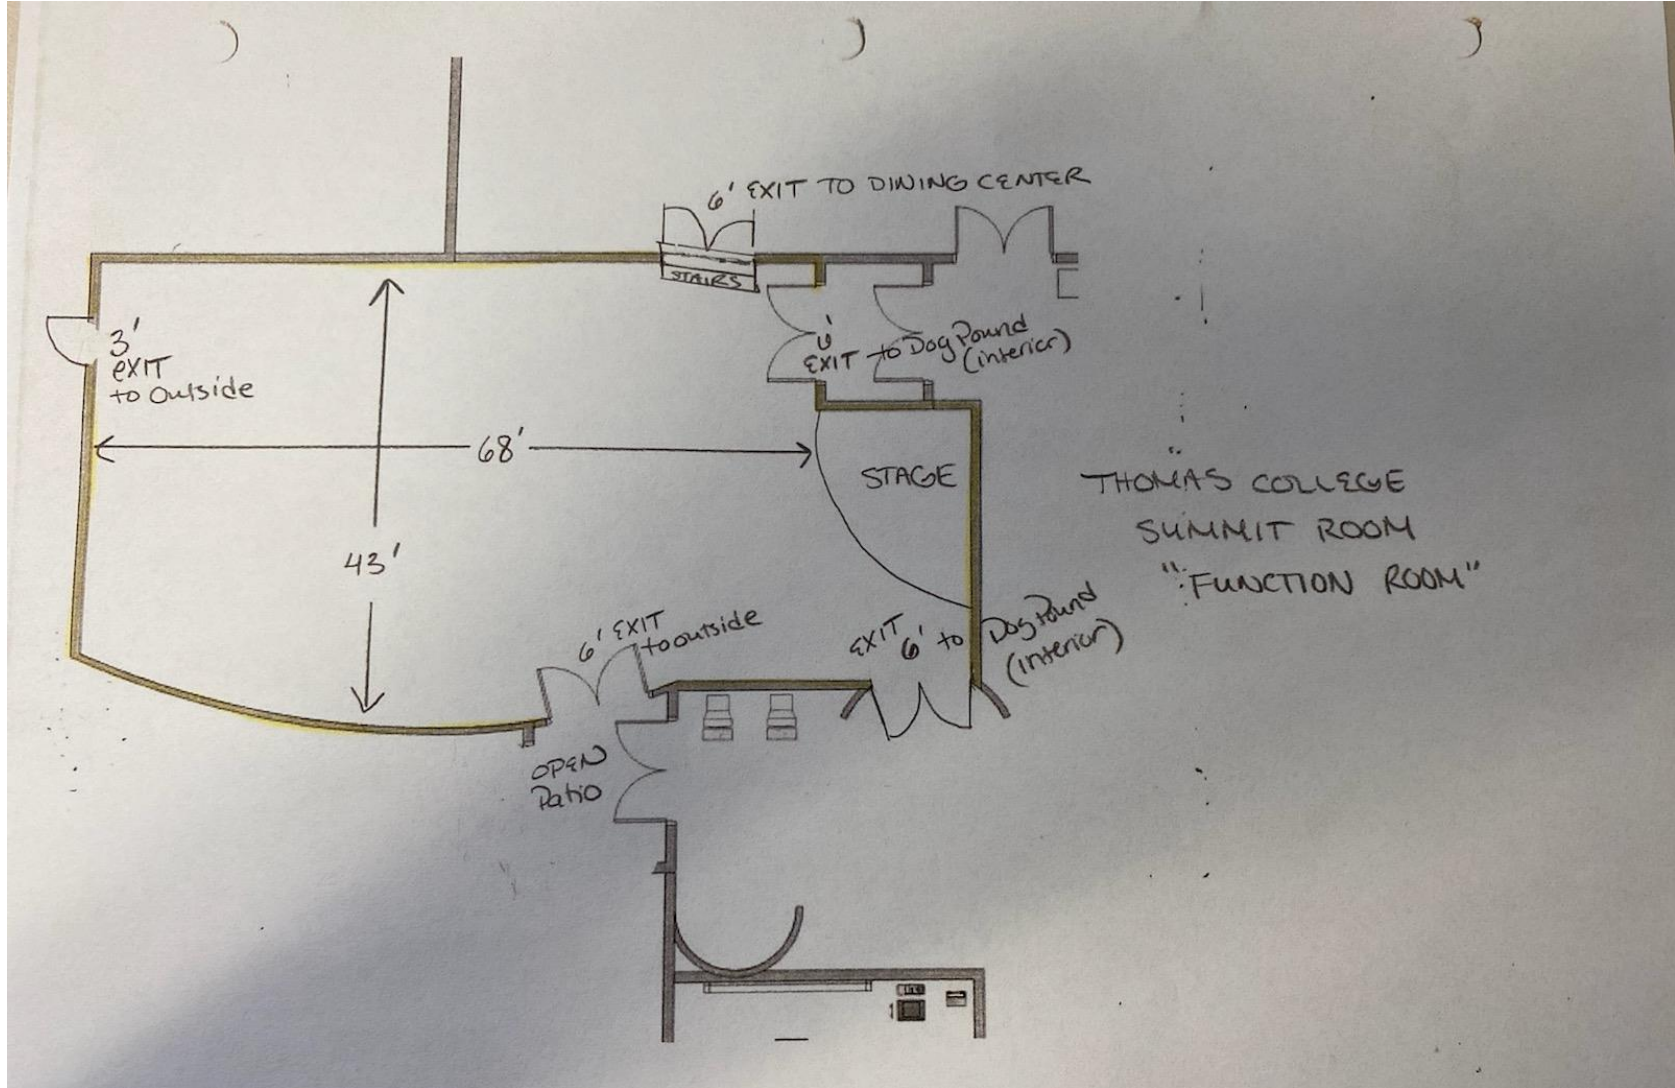 6' EXIT TO DINING CENTER
STAIRS
3'
eXIT
to Outside
6'
EXIT to Dog Pound
(interior)
68'
STAGE
THOMAS COLLEGE
SUMMIT ROOM
"FUNCTION ROOM"
43'
6' EXIT
to outside
EXIT
6' to Dog Pound
(interior)
OPEN
Patio